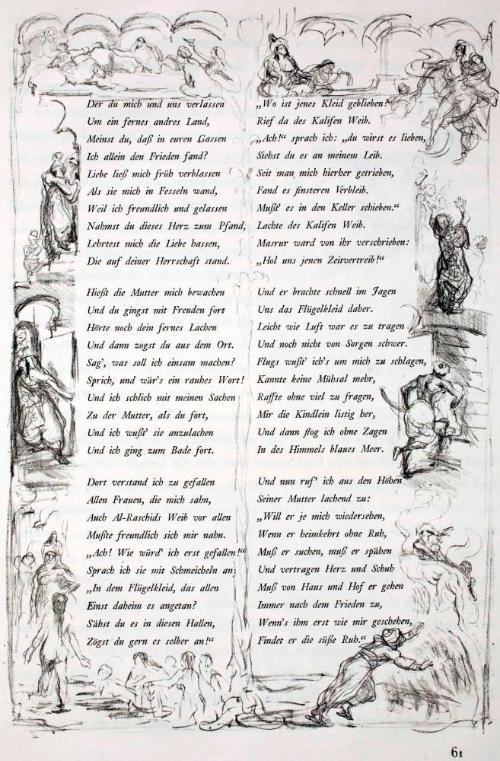 Der du mich und uns verlassen
Um ein fernes andres Land,
Meinst du, daß in euren Gassen
Ich allein den Frieden fand?
Liebe ließ mich früh verblassen
Als sie mich in Fesseln wand,
Weil ich freundlich und gelassen
Nahmst du dieses Herz zum Pfand,
Lehrtest mich die Liebe hassen,
Die auf deiner Herrschaft stand.
Hießt die Mutter mich bewachen
Und du gingst mit Freuden fort
Hörte noch dein fernes Lachen
Und dann zogst du aus dem Ort.
Sag', was soll ich einsam machen?
Sprich, und wär's ein rauhes Wort!
Und ich schlich mit meinen Sachen
Zu der Mutter, als du fort,
Und ich wußt' sie anzulachen
Und ich ging zum Bade fort.
Dort verstand ich zu gefallen
Allen Frauen, die mich sahn,
Auch Al-Raschids Weib vor allen
Mußte freundlich sich mir nahn.
„Ach! Wie würd' ich erst gefallen!“
Sprach ich sie mit Schmeicheln an;
„In dem Flügelkleid, das allen
Einst daheim es angetan?
Sähst du es in diesen Hallen,
Zögst du gern es selber an!“
„Wo ist jenes Kleid geblieben?“
Rief da des Kalifen Weib.
„Ach!“ sprach ich: „du wirst es lieben,
Siehst du es an meinem Leib.
Seit man mich hierher getrieben,
Fand es finsteren Verbleib.
Mußt' es in den Keller schieben.“
Lachte des Kalifen Weib.
Masrur ward von ihr verschrieben:
„Hol uns jenen Zeitvertreib!“
Und er brachte schnell im Jagen
Uns das Flügelkleid daher.
Leicht wie Luft war es zu tragen
Und noch nicht von Sorgen schwer.
Flugs wußt' ich's um mich zu schlagen,
Kannte keine Mühsal mehr,
Raffte ohne viel zu fragen,
Mir die Kindlein listig her,
Und dann flog ich ohne Zagen
In des Himmels blaues Meer.
Und nun ruf' ich aus den Höhen
Seiner Mutter lachend zu:
„Will er je mich wiedersehen,
Wenn er heimkehrt ohne Ruh,
Muß er suchen, muß er spähen
Und vertragen Herz und Schuh
Muß von Haus und Hof er gehen
Immer nach dem Frieden zu,
Wenn's ihm erst wie mir geschehen,
Findet er die süße Ruh.“
61